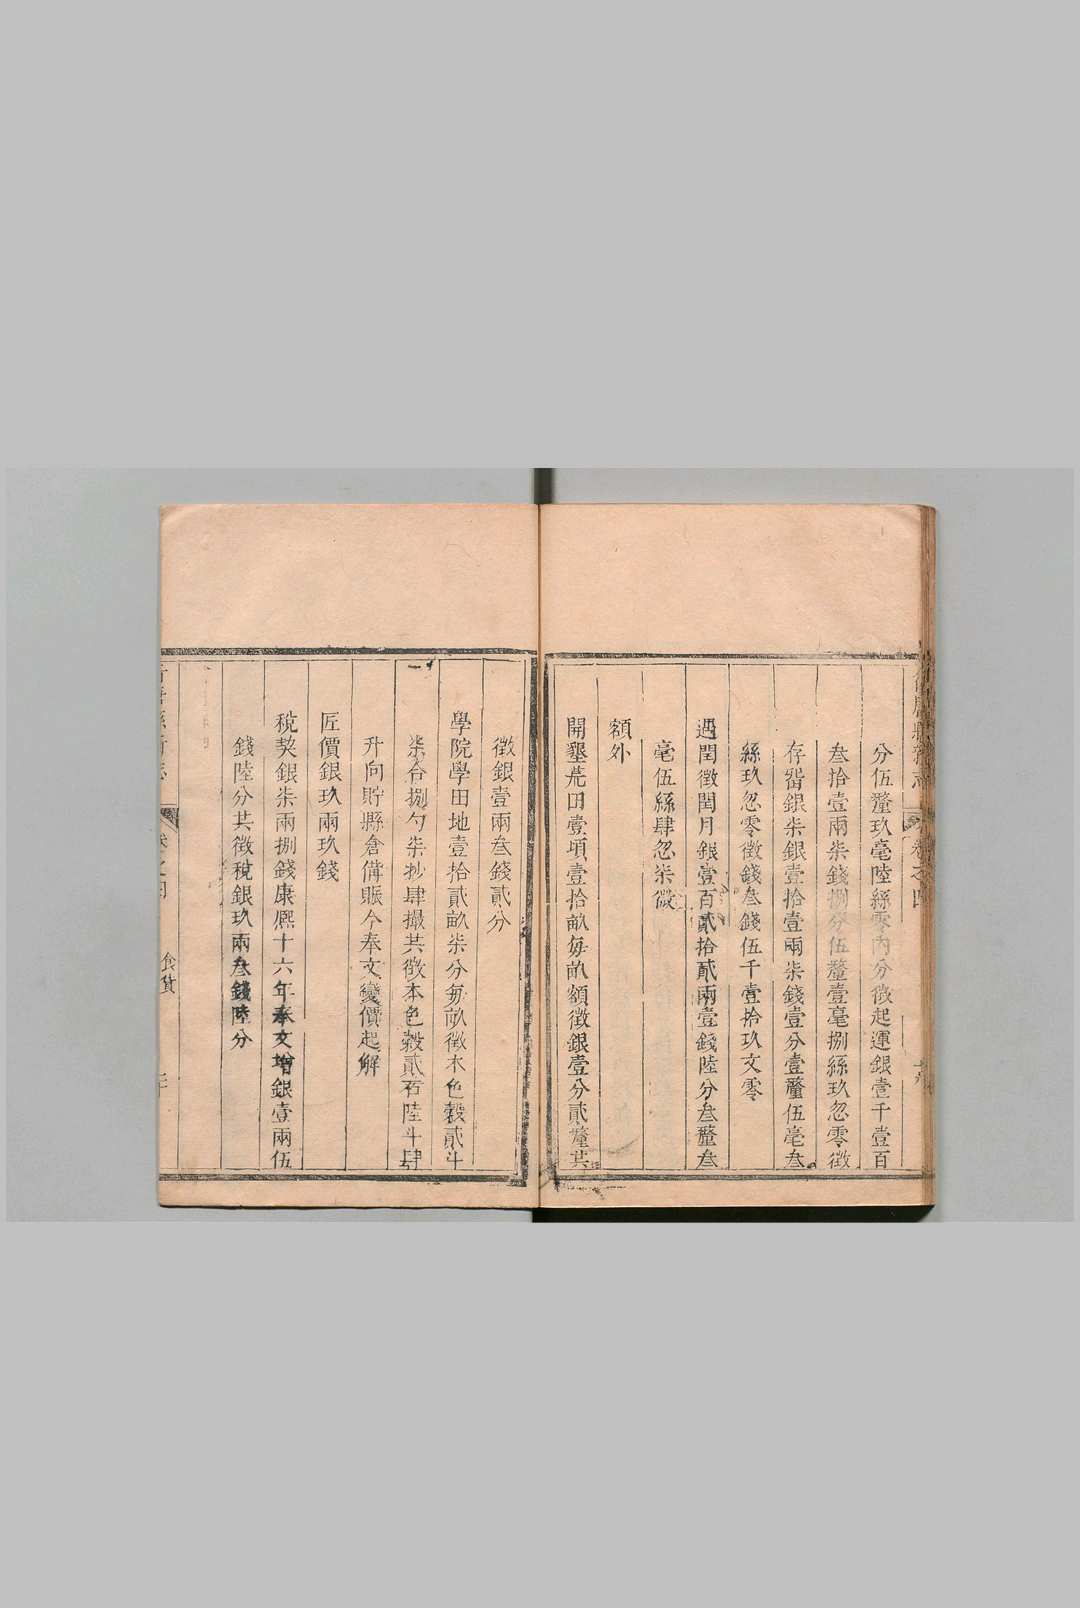 分伍釐玖毫陸絲零內分徵起運銀壹千壹百
叁拾壹兩柒錢捌分伍釐壹毫捌絲玖忽零徵
存畱銀柒銀壹拾壹兩柒錢壹分壹釐伍毫叁
絲玖忽零徵錢叁錢伍千壹拾玖文零
遇閏徵閏月銀壹百貳拾貳兩壹錢陸分叁釐叁
毫伍絲肆忽柒微
額外
開墾荒田壹項壹拾畝每畝額徵銀壹分貳釐共
徵銀壹兩叁錢貳分
學院學田地壹拾貳畝柒分每畝徵本色穀貳斗
柒合捌勺柒抄肆撮共徵本色穀貳石陸斗肆
升向貯縣倉備賑今奉文變價起解
匠價銀玖兩玖錢
稅契銀柒兩捌錢康熙十六年奉文增銀壹兩伍
錢陸分共徵稅銀玖兩叁錢陸分
卷之四
食貨